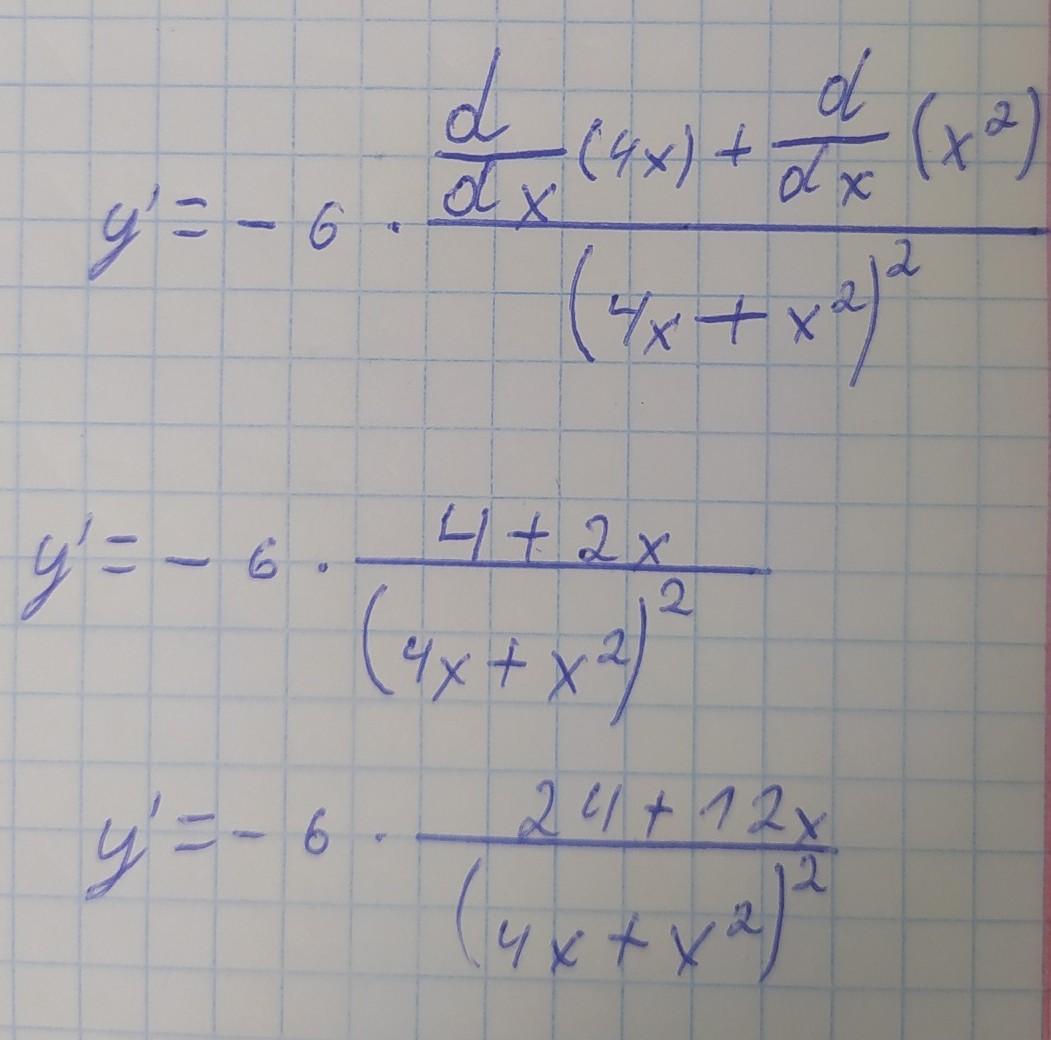 y' = - 6 · (d/dx (4x) + d/dx (x²)) / (4x + x²)²
y' = - 6 · (4 + 2x) / (4x + x²)²
y' = - 6 · (24 + 12x) / (4x + x²)²